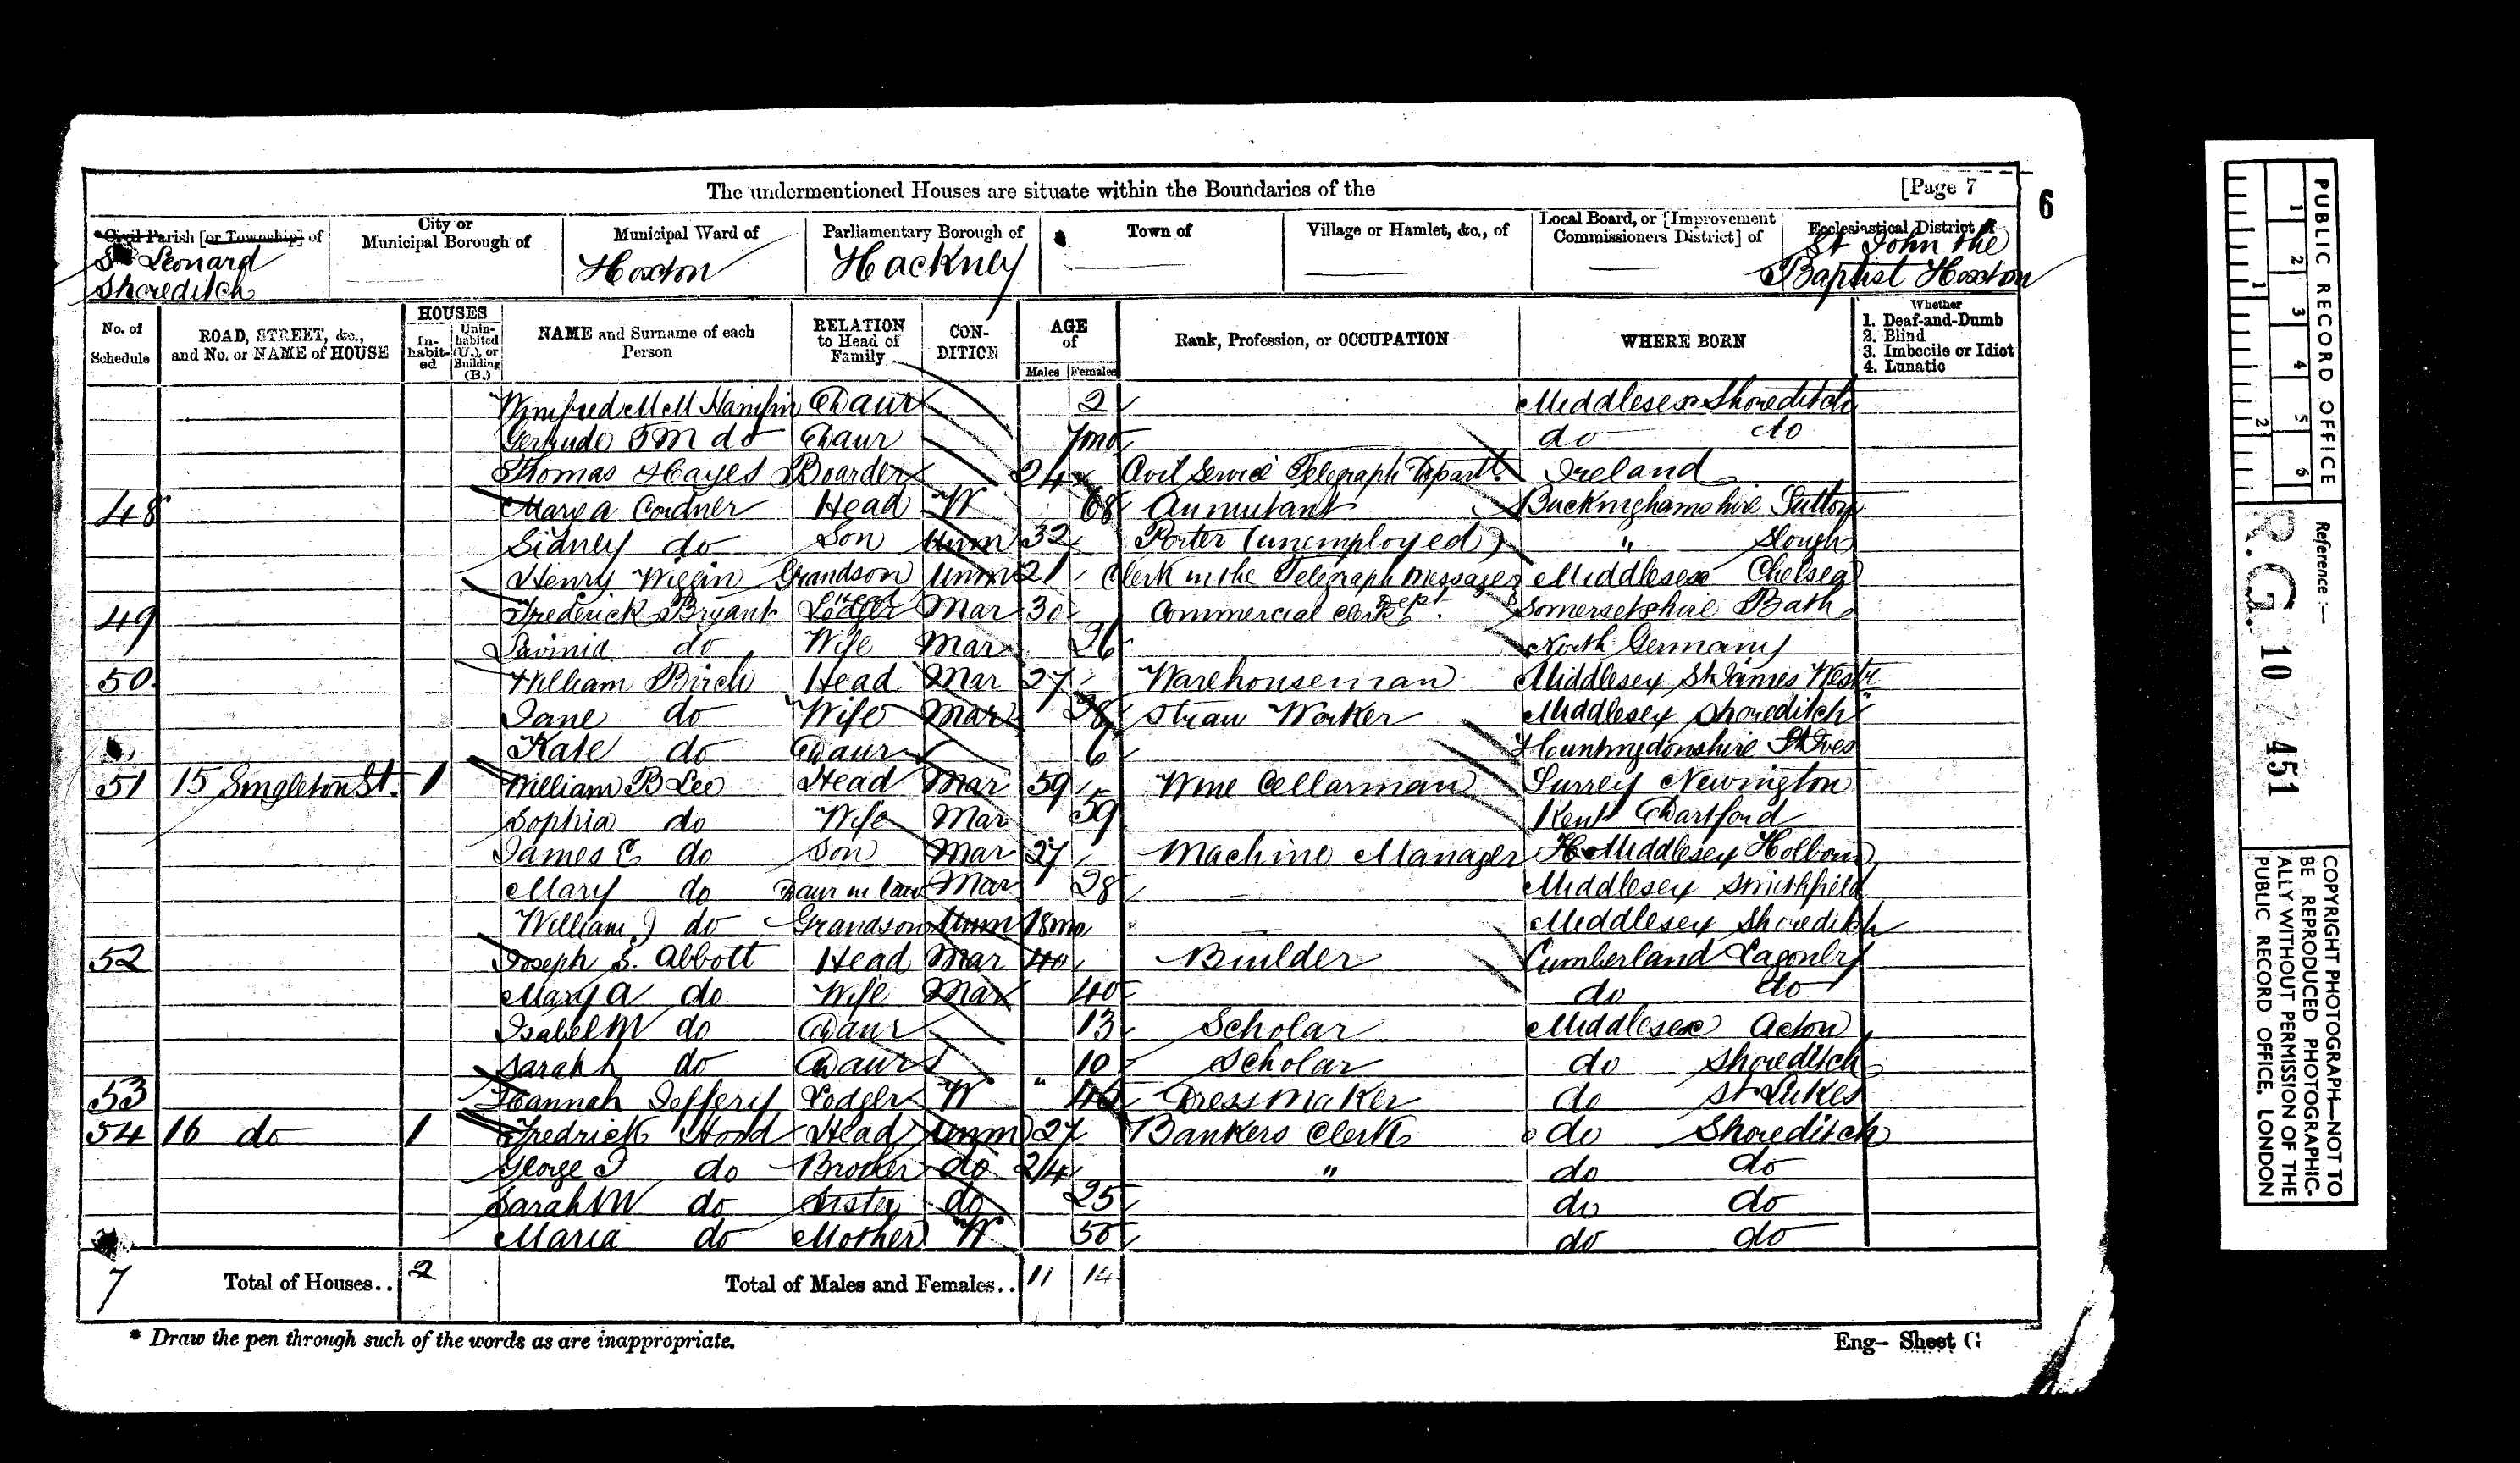 The undermentioned Houses are situate within the Boundaries of the [Page 7
6
Civil Parish [or Township] of
St Leonard
Shoreditch
City or
Municipal Borough of
Municipal Ward of
Hoxton
Parliamentary Borough of
Hackney
Town of
Village or Hamlet, &c., of
Local Board, or [Improvement
Commissioners District] of
Ecclesiastical District of
St John the
Baptist Hoxton
No. of
Schedule
ROAD, STREET, &c.,
and No. or NAME of HOUSE
HOUSES
In-
habit-
ed
Unin-
habited
(U.), or
Building
(B.)
NAME and Surname of each
Person
RELATION
to Head of
Family
CON-
DITION
AGE
of
Males Females
Rank, Profession, or OCCUPATION
WHERE BORN
Whether
1. Deaf-and-Dumb
2. Blind
3. Imbecile or Idiot
4. Lunatic
Winifred M M Daur 2 Middlesex Shoreditch
Gertrude M do Daur 7mo do do
Thomas Hayes Boarder 24 Civil Service Telegraph Departt. Ireland
48 Mary a Cordner Head W 68 Annuitant Buckinghamshire Sutton
Sidney do Son Unm 32 Porter (unemployed) " Slough
Henry Wiggin Grandson Unm 21 Clerk in the Telegraph Messages Dept. Middlesex Chelsea
49 Frederick Bryant Lodger Head Mar 30 Commercial Clerk Somersetshire Bath
Lavinia do Wife Mar 26 North Germany
50 William Birch Head Mar 27 Warehouseman Middlesex St James Westr
Jane do Wife Mar 28 Straw Worker Middlesex Shoreditch
Kate do Daur 6 Huntingdonshire St Ives
51 15 Singleton St. 1 William B Lee Head Mar 59 Wine Cellarman Surrey Newington
Sophia do Wife Mar 59 Kent Dartford
James E do Son Mar 27 Machine Manager Middlesex Holborn
Mary do Daur in law Mar 28 Middlesex Smithfield
William J do Grandson Unm 18mo Middlesex Shoreditch
52 Joseph S. Abbott Head Mar 40 Builder Cumberland Lazonby
Mary A do Wife Mar 40 do do
Isabel M do Daur 13 Scholar Middlesex Acton
Sarah L do Daur 10 Scholar do Shoreditch
53 Hannah Jeffery Lodger W " 45 Dress Maker do St Lukes
54 16 do 1 Fredrick Hood Head Unm 27 Bankers Clerk do Shoreditch
George J do Brother do 24 " do do
Sarah M do Sister do 25 do do
Maria do Mother W 50 do do
7 Total of Houses.. 2 Total of Males and Females.. 11 14
* Draw the pen through such of the words as are inappropriate.
Eng- Sheet G
PUBLIC RECORD OFFICE
1 2 3 4 5 6
1 2
Reference :-
R.G. 10 / 451
COPYRIGHT PHOTOGRAPH—NOT TO
BE REPRODUCED PHOTOGRAPHIC-
ALLY WITHOUT PERMISSION OF THE
PUBLIC RECORD OFFICE, LONDON